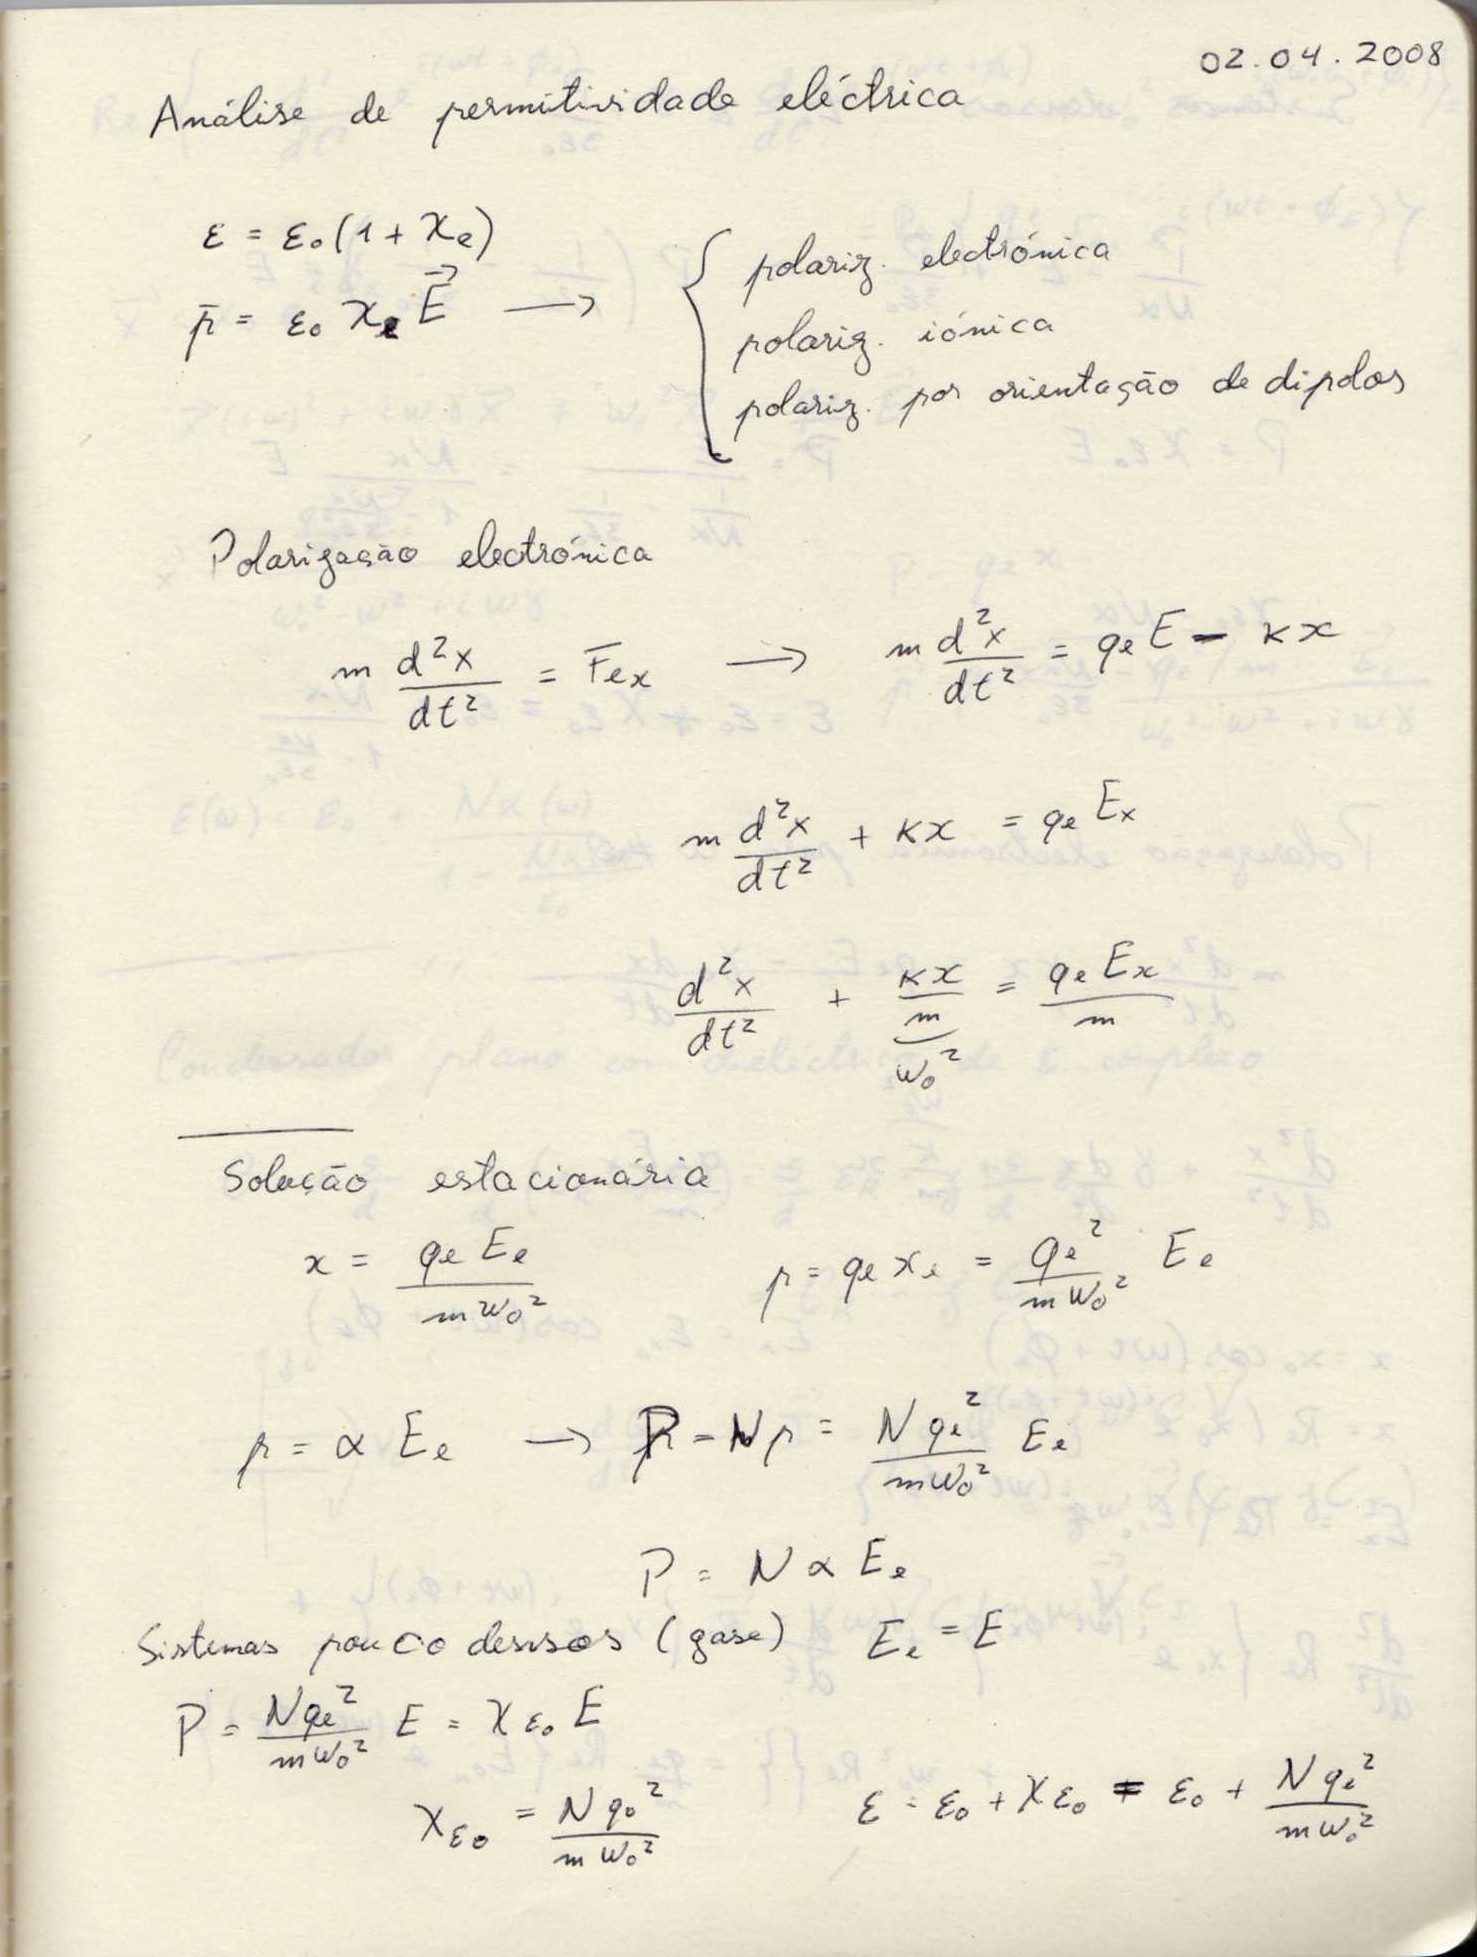 02.04.2008
Análise de permitividade eléctrica
ε = ε₀(1 + χₑ)
p̄ = ε₀ χₑ E⃗ → {
polariz. electrónica
polariz. iónica
polariz. por orientação de dipolos
Polarização electrónica
m d²x/dt² = F̄ₑₓ → m d²x/dt² = qₑE − κx
m d²x/dt² + κx = qₑ Eₓ
d²x/dt² + κx/m = qₑEₓ/m
ω₀²
Solução estacionária
x = qₑEₑ/mω₀² p = qₑxₑ = qₑ²/mω₀² Eₑ
p = α Eₑ → P = Np = Nqₑ²/mω₀² Eₑ
P = N α Eₑ
Sistemas pouco densos (gase) Eₑ = E
P = Nqₑ²/mω₀² E = χε₀ E
χε₀ = Nq₀²/mω₀² ε = ε₀ + χε₀ = ε₀ + Nqₑ²/mω₀²